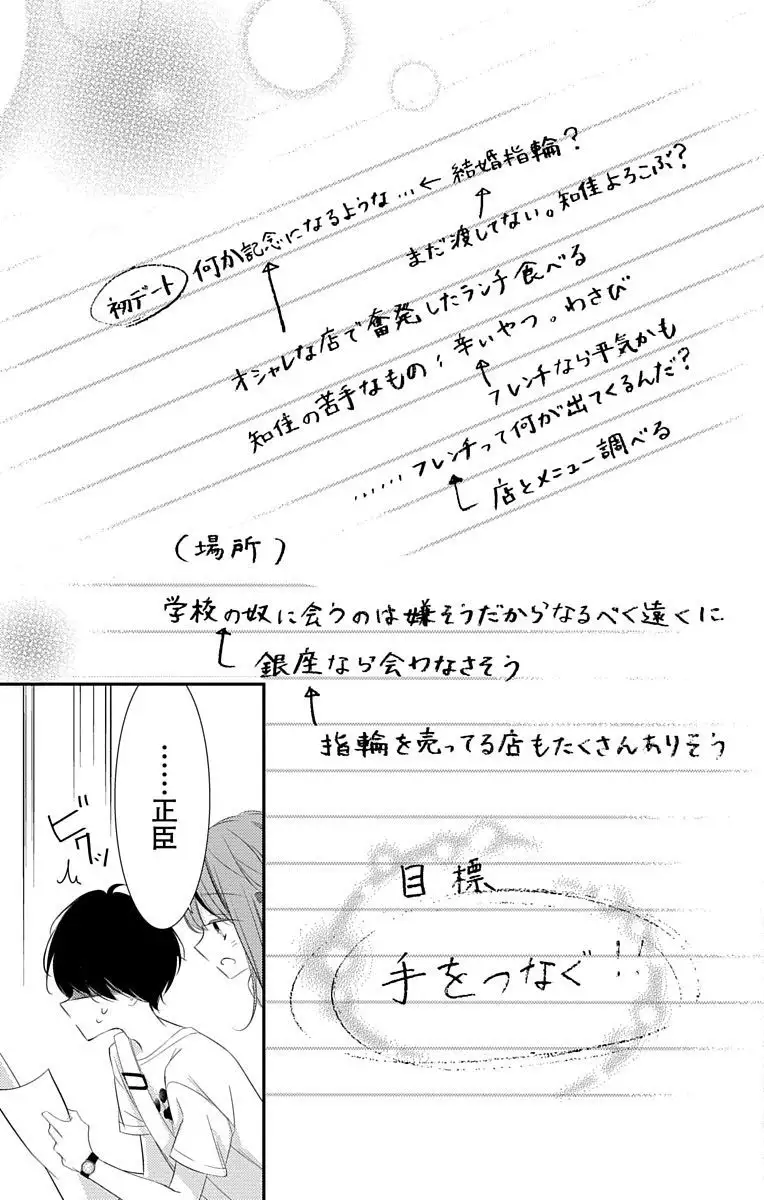 初デート 何か記念になるような…←結婚指輪?
まだ渡してない。知佳よろこぶ?
オシャレな店で奮発したランチ食べる
知佳の苦手なもの:辛いやつ。わさび
フレンチなら平気かも
……フレンチって何が出てくるんだ?
店とメニュー調べる
(場所)
学校の奴に会うのは嫌そうだからなるべく遠くに
銀座なら会わなさそう
指輪を売ってる店もたくさんありそう
目標
手をつなぐ!!
……正臣
ビクッ